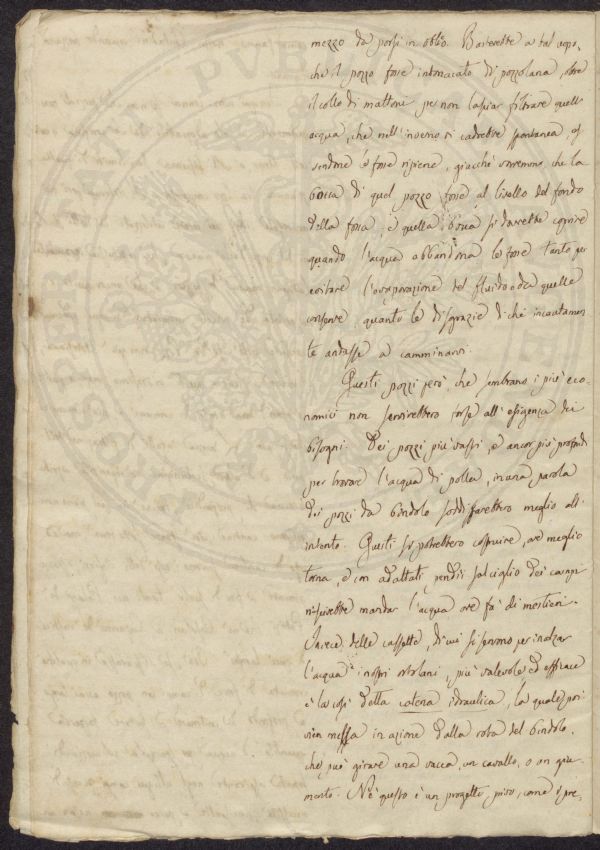 mezzo da porsi in obblio. Basterebbe a tal uopo,
che il pozzo fosse intonacato di pozzolana, oltre
il collo di mattoni per non lasciar filtrare quell'
acqua, che nell'inverno vi cadrebbe spontanea, es
sendone le fosse ripiene, giacchè vorremmo che la
bocca di quel pozzo fosse al livello del fondo
della fossa, e quella bocca si dovrebbe coprire
quando l'acqua abbandona le fosse tanto per
evitare l'evaporazione del fluido da quelle
conserve, quanto le disgrazie di chi incautamen
te andasse a camminarvi.
Questi pozzi però che sembrano i più eco-
nomici non servirebbero forse all'esigenza dei
bisogni. Dei pozzi più vasti, e ancor più profondi
per trovare l'acqua di polla, in una parola
dei pozzi da bindolo soddisfarebbero meglio all'
intento. Questi si potrebbero costruire, ove meglio
torna, e con adattati pendii sul ciglio dei campi
riuscirebbe mandar l'acqua ove fa di mestieri.
Invece delle cassette, di cui si servono per inalzar
l'acqua i nostri ortolani, più valevole ed efficace
è la così detta catena idraulica, la quale poi
vien messa in azione dalla rota del bindolo,
che può girare una vacca, un cavallo, o un giu-
mento. Nè questo è un progetto, miso, come si pre-